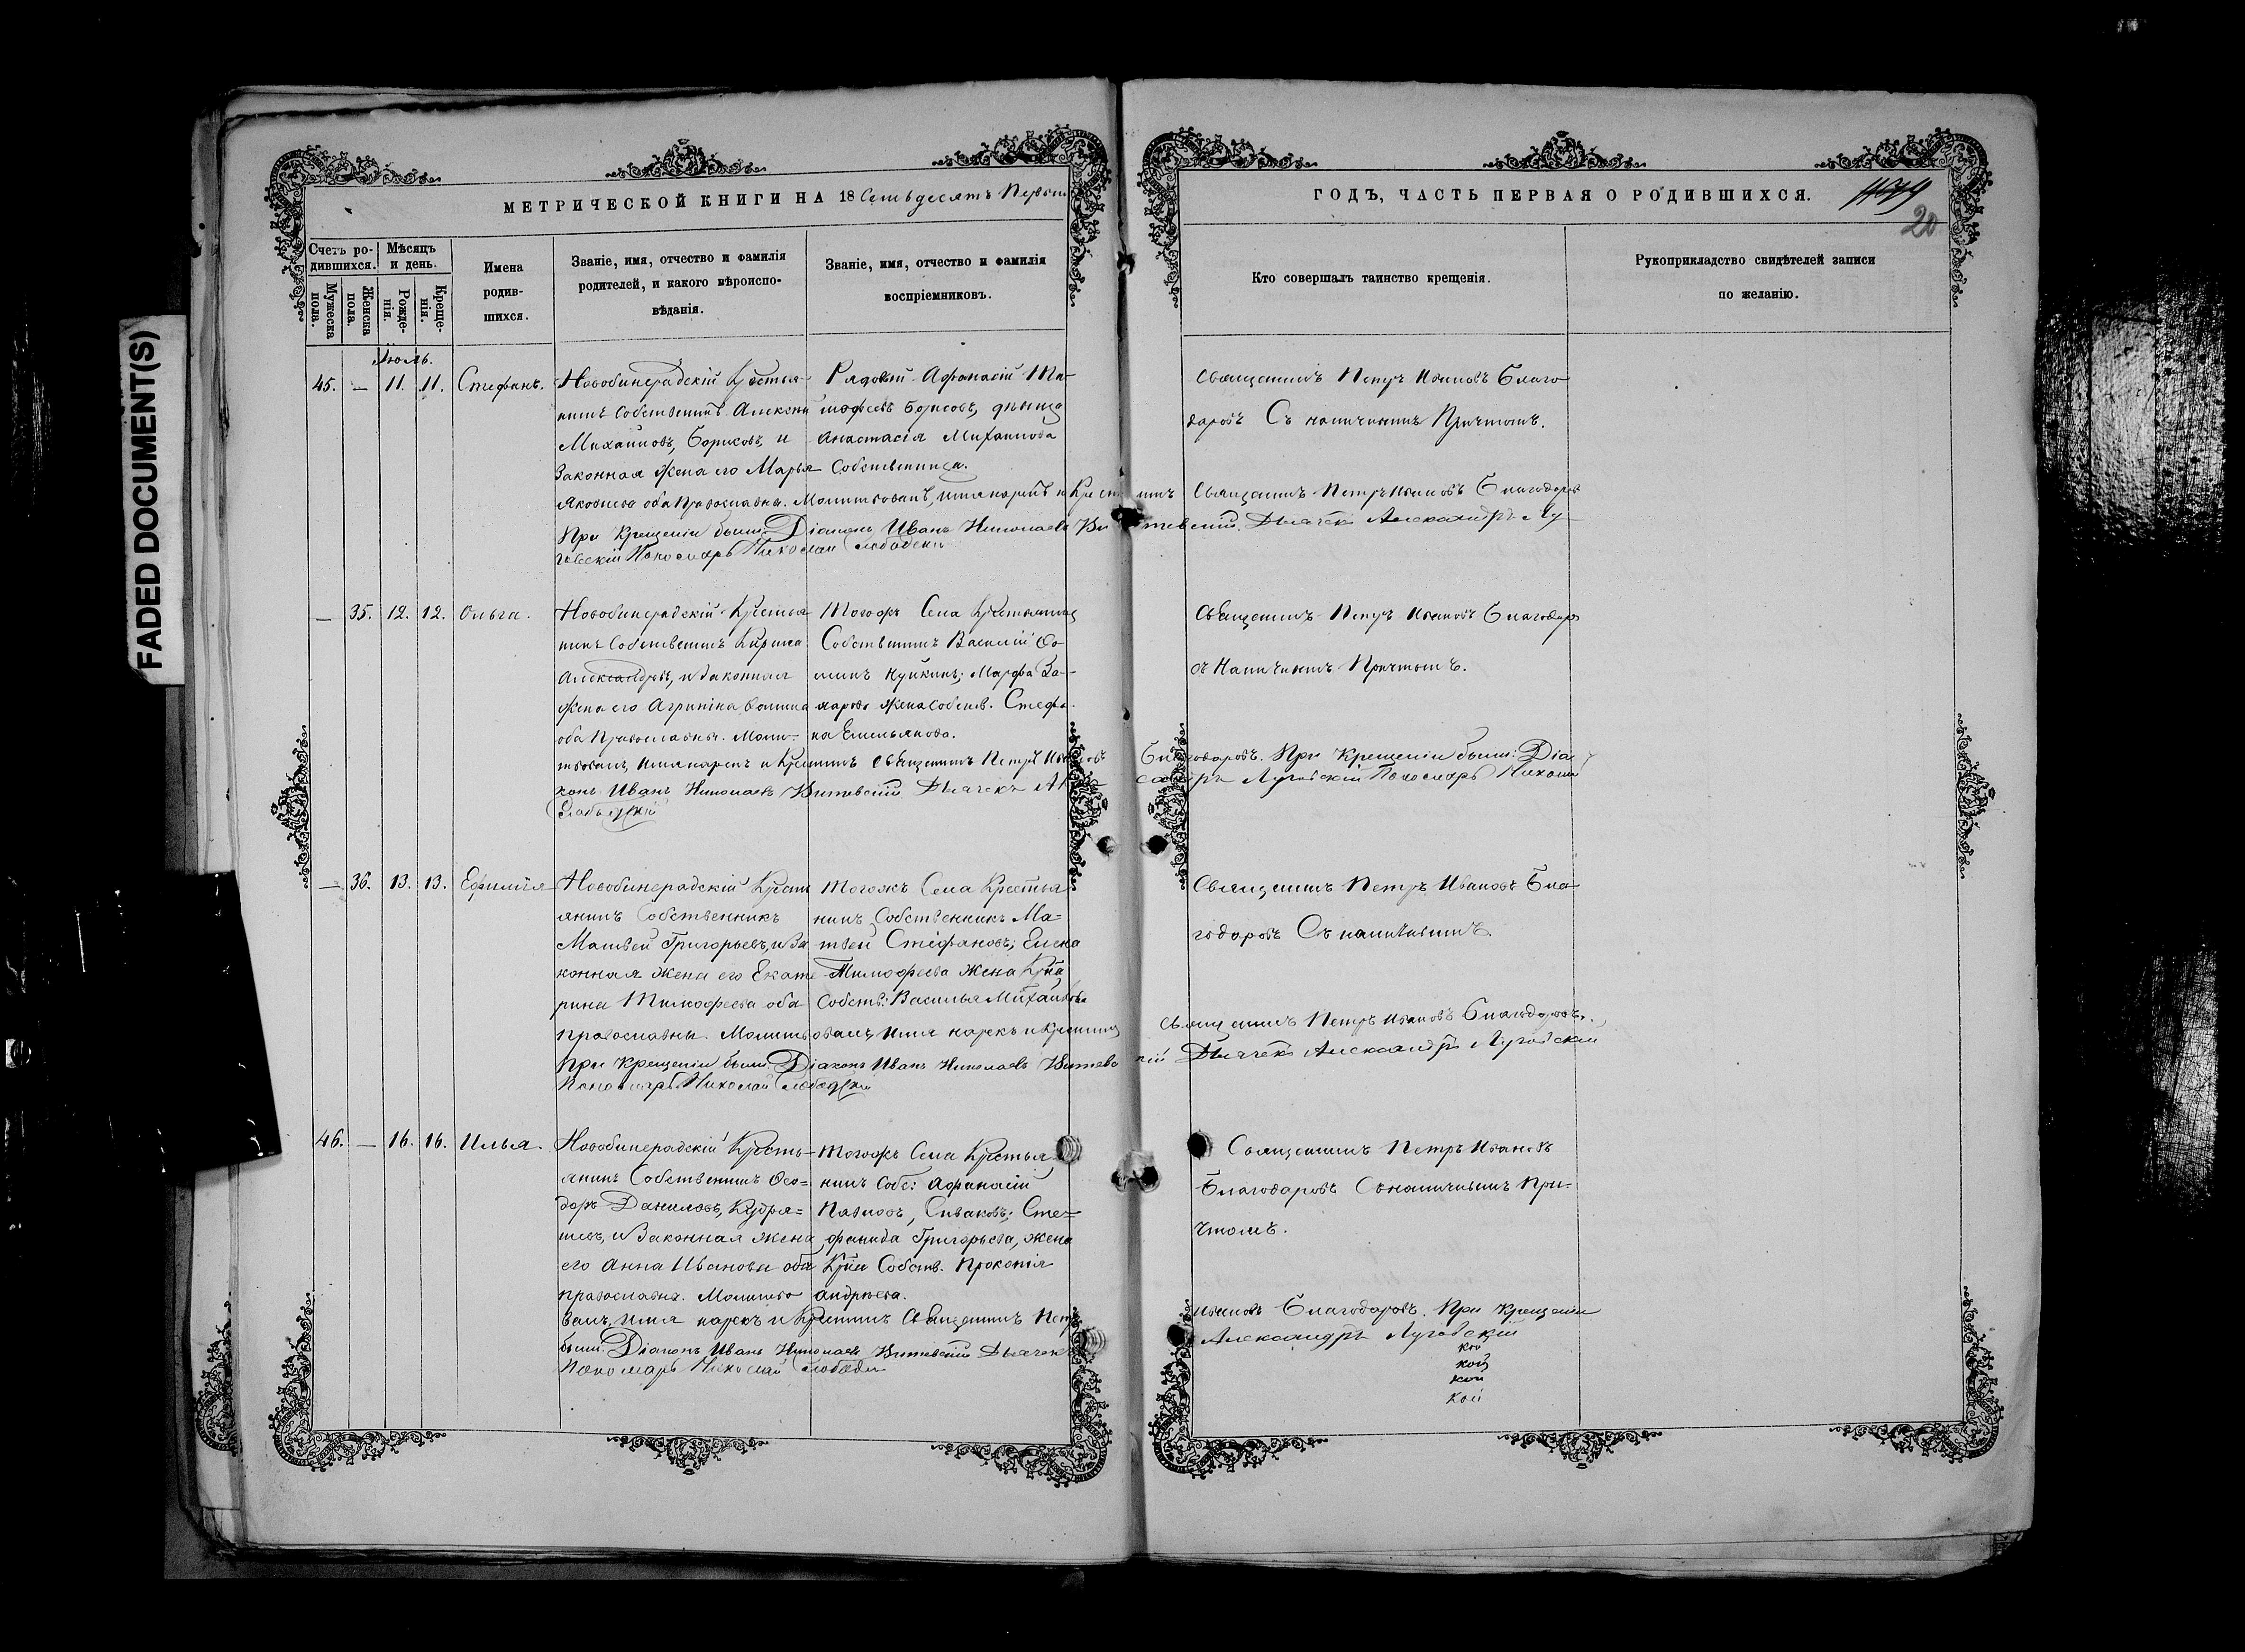 FADED DOCUMENT(S)
МЕТРИЧЕСКОЙ КНИГИ НА 18 Семьдесятъ Первый
ГОДЪ, ЧАСТЬ ПЕРВАЯ О РОДИВШИХСЯ.
20
Счетъ ро-
дившихся.
Мужеска
пола.
Женска
пола.
Мѣсяцъ
и день.
Рожде-
нія.
Креще-
нія.
Имена
родив-
шихся.
Званіе, имя, отчество и фамилія
родителей, и какого вѣроиспо-
вѣданія.
Званіе, имя, отчество и фамилія
воспріемниковъ.
Кто совершалъ таинство крещенія.
Рукоприкладство свидѣтелей записи
по желанію.
Июль.
45. — 11. 11. Стефанъ.
Новобинерадскій Крестья-
нинъ Собственникъ Алексѣй
Михайловъ, Борисовъ, и
Законная Жена его Марья
Яковлева оба Православны. Молитвовалъ, имя нарекъ и Крестилъ Священникъ Петръ Ивановъ Благодаровъ
При Крещеніи были: Діаконъ Иванъ Николаевъ Витевскій. Дьячекъ Александръ Лу-
говскій Пономарь Николай Слободской
Рядовой Афанасій Ти-
мофеевъ Борисовъ, дѣвица
Анастасія Михайлова
Собственница.
Священникъ Петръ Ивановъ Благо-
даровъ Съ наличнымъ Причтомъ.
— 35. 12. 12. Ольга.
Новобинерадскій Крестья
нинъ Собственникъ Кирила
Александровъ, и Законная
Жена его Агрипина Фомина
оба Православны. Моли-
твовалъ, имя нарекъ и Крестилъ Священникъ Петръ Ивановъ Благодаровъ. При Крещеніи были: Діа-
конъ Иванъ Николаевъ Витевскій Дьячекъ Александръ Луговскій Пономарь Николай
Слободской
Тогожъ Села Крестьянинъ
Собственникъ Василій Фо-
минъ Марфа За-
харова Жена Собств. Стефа-
на Емельянова.
Священникъ Петръ Ивановъ Благодаровъ
съ Наличнымъ Причтомъ.
— 36. 13. 13. Ефимія
Новобинерадскій Кресть
янинъ Собственникъ
Матвей Григорьевъ, и За
конная жена его Екате
рина Тимофеева оба
православны. Молитвовалъ, имя нарекъ и Крестилъ Священникъ Петръ Ивановъ Благодаровъ.
При Крещеніи были: Діаконъ Иванъ Николаевъ Витевскій Дьячекъ Александръ Луговской
Пономарь Николай Слободской
Тогожъ Села Крестья
нинъ Собственникъ Ма-
твей Стефановъ; Елена
Тимофеева жена Крна
Собств: Василья Михайлова
Священникъ Петръ Ивановъ Бла-
годаровъ Съ наличнымъ.
46. — 16. 16. Илья.
Новобинерадскій Кресть-
янинъ Собственникъ Фео-
доръ Даниловъ, Кудря-
шевъ, и Законная жена
его Анна Иванова оба
православны. Молитво
валъ, имя нарекъ и Крестилъ Священникъ Петръ Ивановъ Благодаровъ. При Крещеніи
были: Діаконъ Иванъ Николаевъ Витевскій Дьячекъ Александръ Луговскій
Пономарь Николай Слободской
Тогожъ Села Крестья
нинъ Собс: Афанасій
Павловъ, Сиваковъ; Сте-
фанида Григорьева, жена
Крна Собств. Прокопія
Андреева.
Священникъ Петръ Ивановъ
Благодаровъ Съ наличнымъ При-
чтомъ.
кой
кой
кой
кой